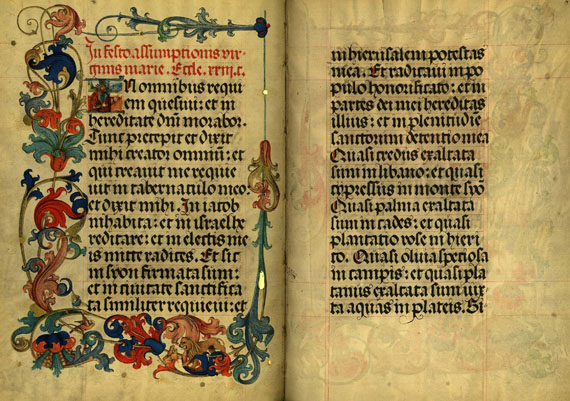 In festo assumptionis vir-
ginis marie. Eccle. xxiiij. c.
In omnibus requi
em quesiui: et in
hereditate dnī morabor.
Tunc precepit et dixit
mihi creator omniū: et
qui creauit me requie
uit in tabernaculo meo:
et dixit mihi. In iacob
inhabita: et in israel he
reditare: et in electis me
is mitte radices. Et sic
in syon firmata sum:
et in ciuitate sanctifica
ta similiter requieui: et
in hierusalem potestas
mea. Et radicaui in po
pulo honorificato: et in
partes dei mei hereditas
illius: et in plenitudīe
sanctorum detentio mea
Quasi cedrus exaltata
sum in libano: et quasi
cypressus in monte syō
Quasi palma exaltata
sum in cades: et quasi
plantatio rose in hieri
co. Quasi oliua speciosa
in campis: et quasi pla
tanus exaltata sum iux
ta aquas in plateis. Si